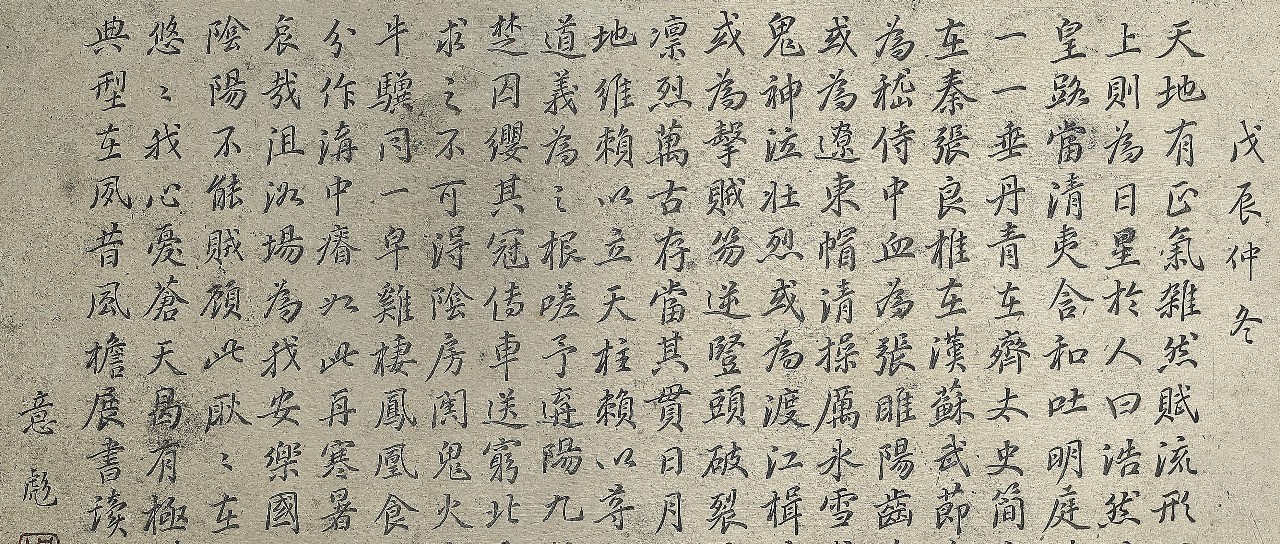 戊辰仲冬
天地有正氣雜然賦流形
上則為日星於人曰浩然
皇路當清夷含和吐明庭
一一垂丹青在齊太史簡
在秦張良椎在漢蘇武節
為嵇侍中血為張睢陽齒
或為遼東帽清操厲冰雪
鬼神泣壯烈或為渡江楫
或為擊賊笏逆豎頭破裂
凛烈萬古存當其貫日月
地維賴以立天柱賴以尊
道義為之根嗟予遘陽九
楚囚纓其冠傳車送窮北
求之不可得陰房闃鬼火
牛驥同一皁雞棲鳳凰食
分作溝中瘠如此再寒暑
哀哉沮洳場為我安樂國
陰陽不能賊顧此耿々在
悠々我心憂蒼天曷有極
典型在夙昔風檐展書讀
意彪